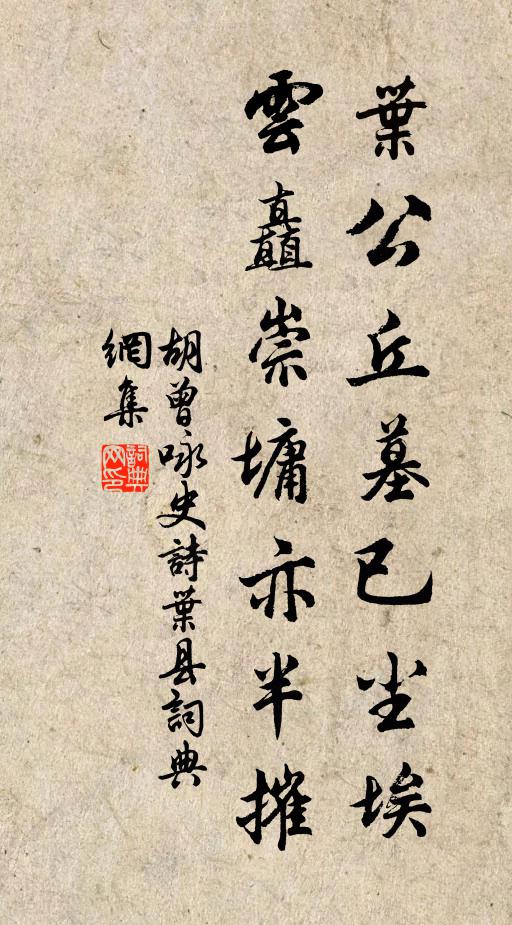 葉公丘墓已尘埃
雲矗崇墉亦半摧
胡曾咏史詩葉县詞典
網集
詞典
网印